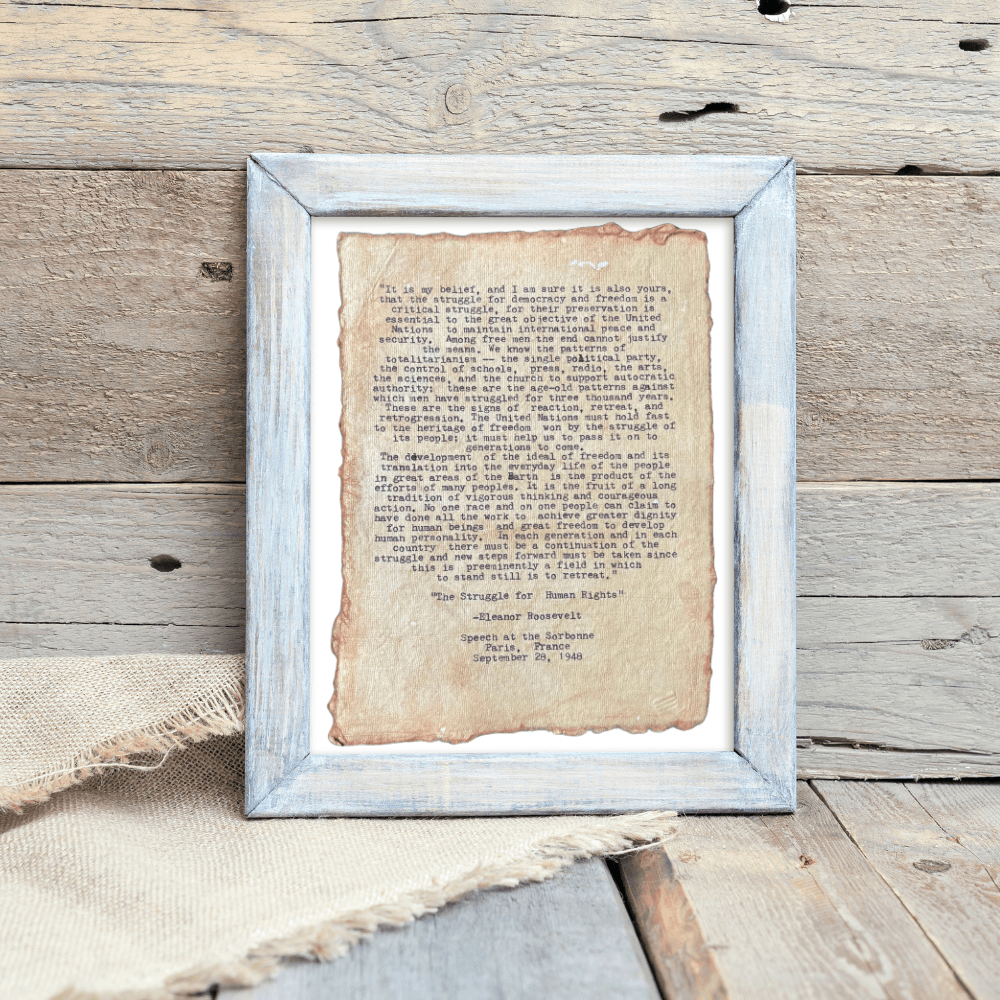 "It is my belief, and I am sure it is also yours,
that the struggle for democracy and freedom is a
critical struggle, for their preservation is
essential to the great objective of the United
Nations to maintain international peace and
security. Among free men the end cannot justify
the means. We know the patterns of
totalitarianism -- the single political party,
the control of schools, press, radio, the arts,
the sciences, and the church to support autocratic
authority; these are the age-old patterns against
which men have struggled for three thousand years.
These are the signs of reaction, retreat, and
retrogression. The United Nations must hold fast
to the heritage of freedom won by the struggle of
its people; it must help us to pass it on to
generations to come.
The development of the ideal of freedom and its
translation into the everyday life of the people
in great areas of the Earth is the product of the
efforts of many peoples. It is the fruit of a long
tradition of vigorous thinking and courageous
action. No one race and on one people can claim to
have done all the work to achieve greater dignity
for human beings and great freedom to develop
human personality. In each generation and in each
country there must be a continuation of the
struggle and new steps forward must be taken since
this is preeminently a field in which
to stand still is to retreat."
"The Struggle for Human Rights"
-Eleanor Roosevelt
Speech at the Sorbonne
Paris, France
September 28, 1948